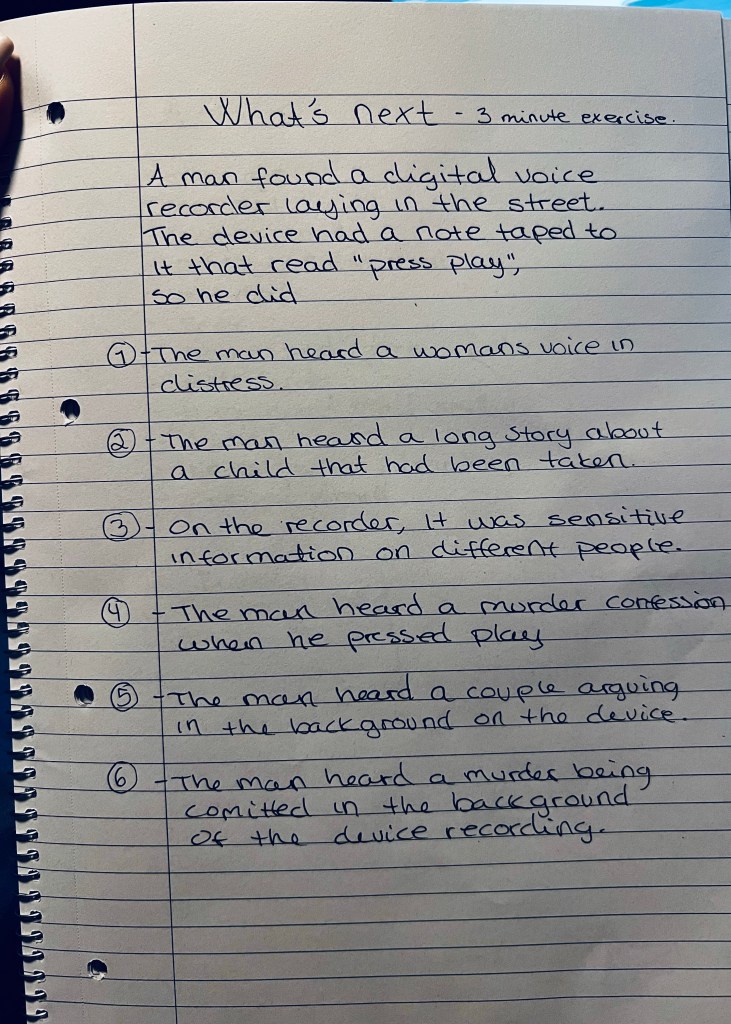 What's next - 3 minute exercise.
A man found a digital voice
recorder laying in the street.
The device had a note taped to
it that read "press play",
so he did
① - The man heard a womans voice in
distress.
② - The man heard a long story about
a child that had been taken.
③ - On the recorder, it was sensitive
information on different people.
④ - The man heard a murder confession
when he pressed play
⑤ - The man heard a couple arguing
in the background on the device.
⑥ - The man heard a murder being
comitted in the background
of the device recording.